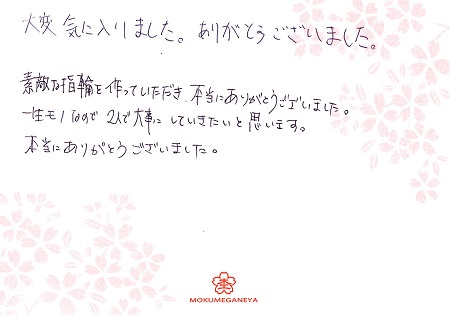 大変気に入りました。ありがとうございました。
素敵な指輪を作っていただき、本当にありがとうございました。
一生モノなので2人で大事にしていきたいと思います。
本当にありがとうございました。
MOKUMEGANEYA